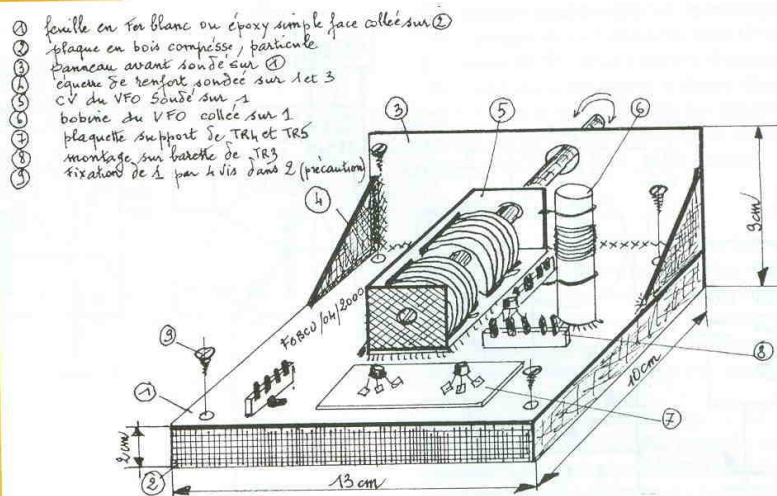 ① feuille en Fer blanc ou époxy simple face collée sur ②
② plaque en bois compressé, particule
③ panneau avant soudé sur ①
④ équerre de renfort soudée sur 1 et 3
⑤ CV du VFO Soudé sur 1
⑥ bobine du VFO collée sur 1
⑦ plaquette support de TR4 et TR5
⑧ montage sur barette de TR3
⑨ Fixation de 1 par 4 vis dans 2 (précaution)
③
⑤
⑥
④
9cm
F6BCU/04/2000
⑨
⑧
①
10cm
⑦
2cm
②
13cm